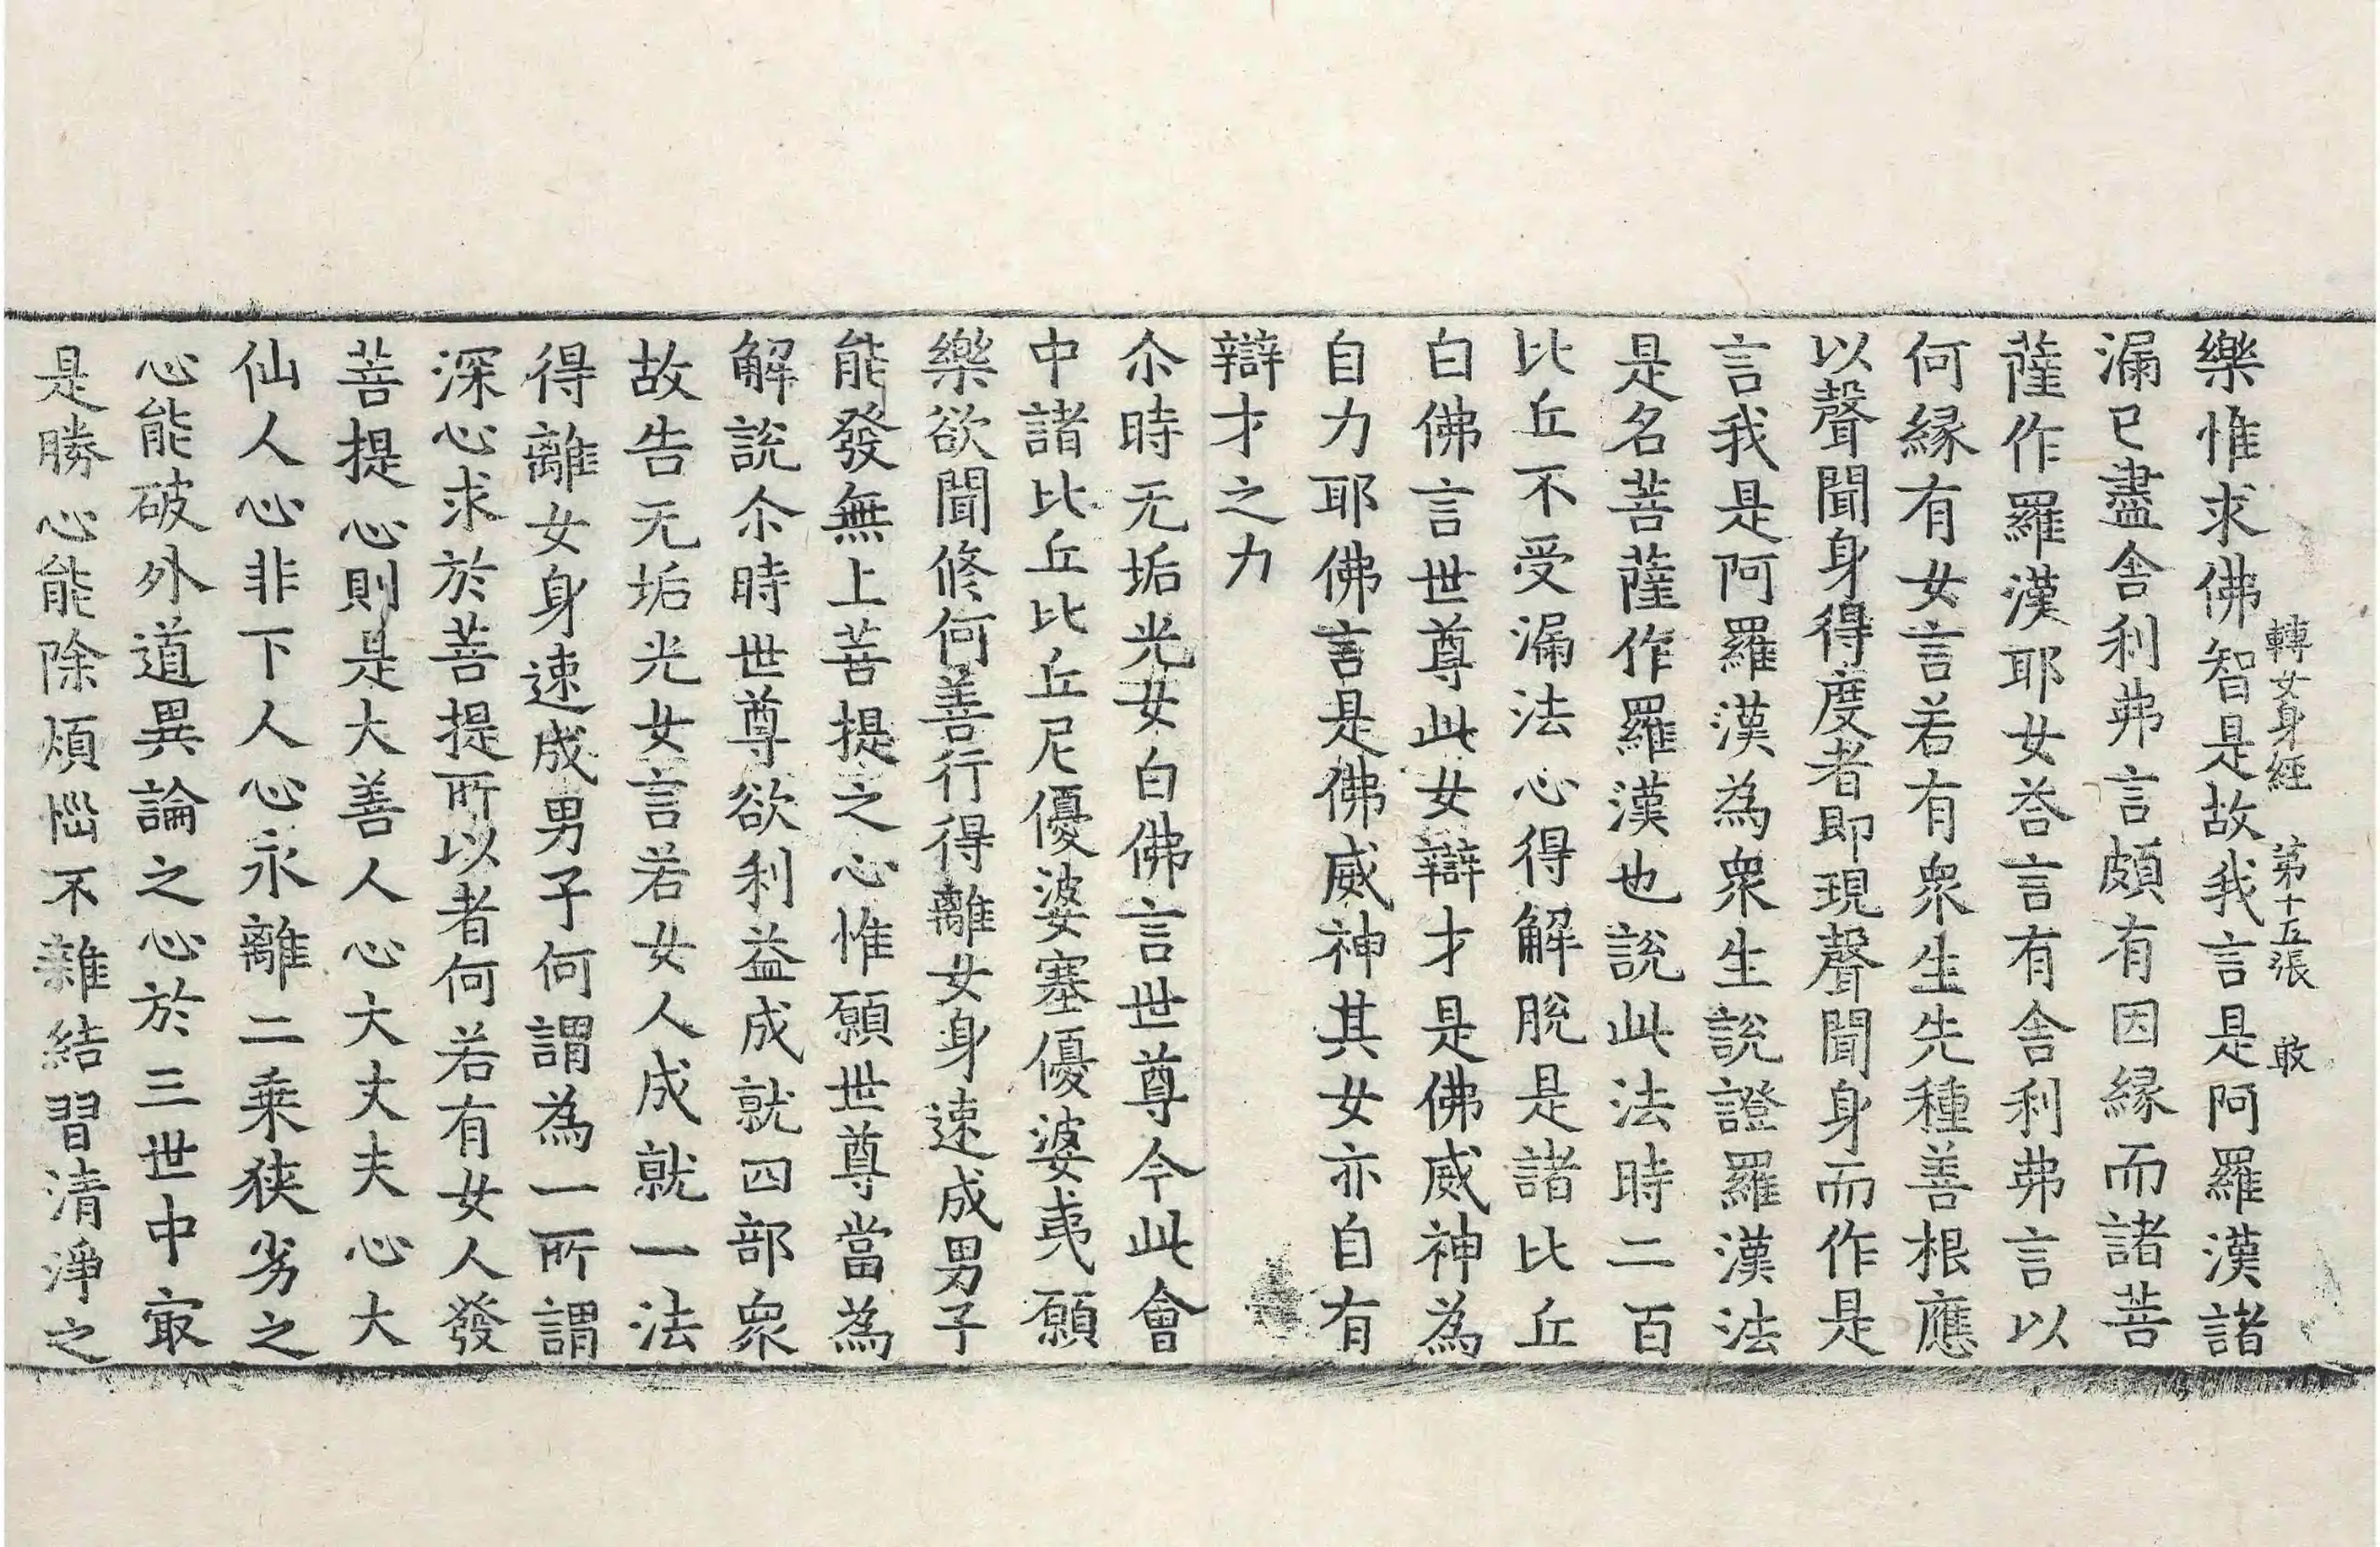 轉女身經 第十五張 敢
樂惟求佛智是故我言是阿羅漢諸
漏已盡舍利弗言頗有因緣而諸菩
薩作羅漢耶女荅言有舍利弗言以
何緣有女言若有衆生先種善根應
以聲聞身得度者即現聲聞身而作是
言我是阿羅漢為衆生說證羅漢法
是名菩薩作羅漢也說此法時二百
比丘不受漏法心得解脫是諸比丘
白佛言世尊此女辯才是佛威神為
自力耶佛言是佛威神其女亦自有
辯才之力
尒時无垢光女白佛言世尊今此會
中諸比丘比丘尼優婆塞優婆夷願
樂欲聞修何善行得離女身速成男子
能發無上菩提之心惟願世尊當為
解說尒時世尊欲利益成就四部衆
故告无垢光女言若女人成就一法
得離女身速成男子何謂為一所謂
深心求於菩提所以者何若有女人發
菩提心則是大善人心大丈夫心大
仙人心非下人心永離二乗狹劣之
心能破外道異論之心於三世中㝡
是勝心能除煩惱不雜結習清淨之